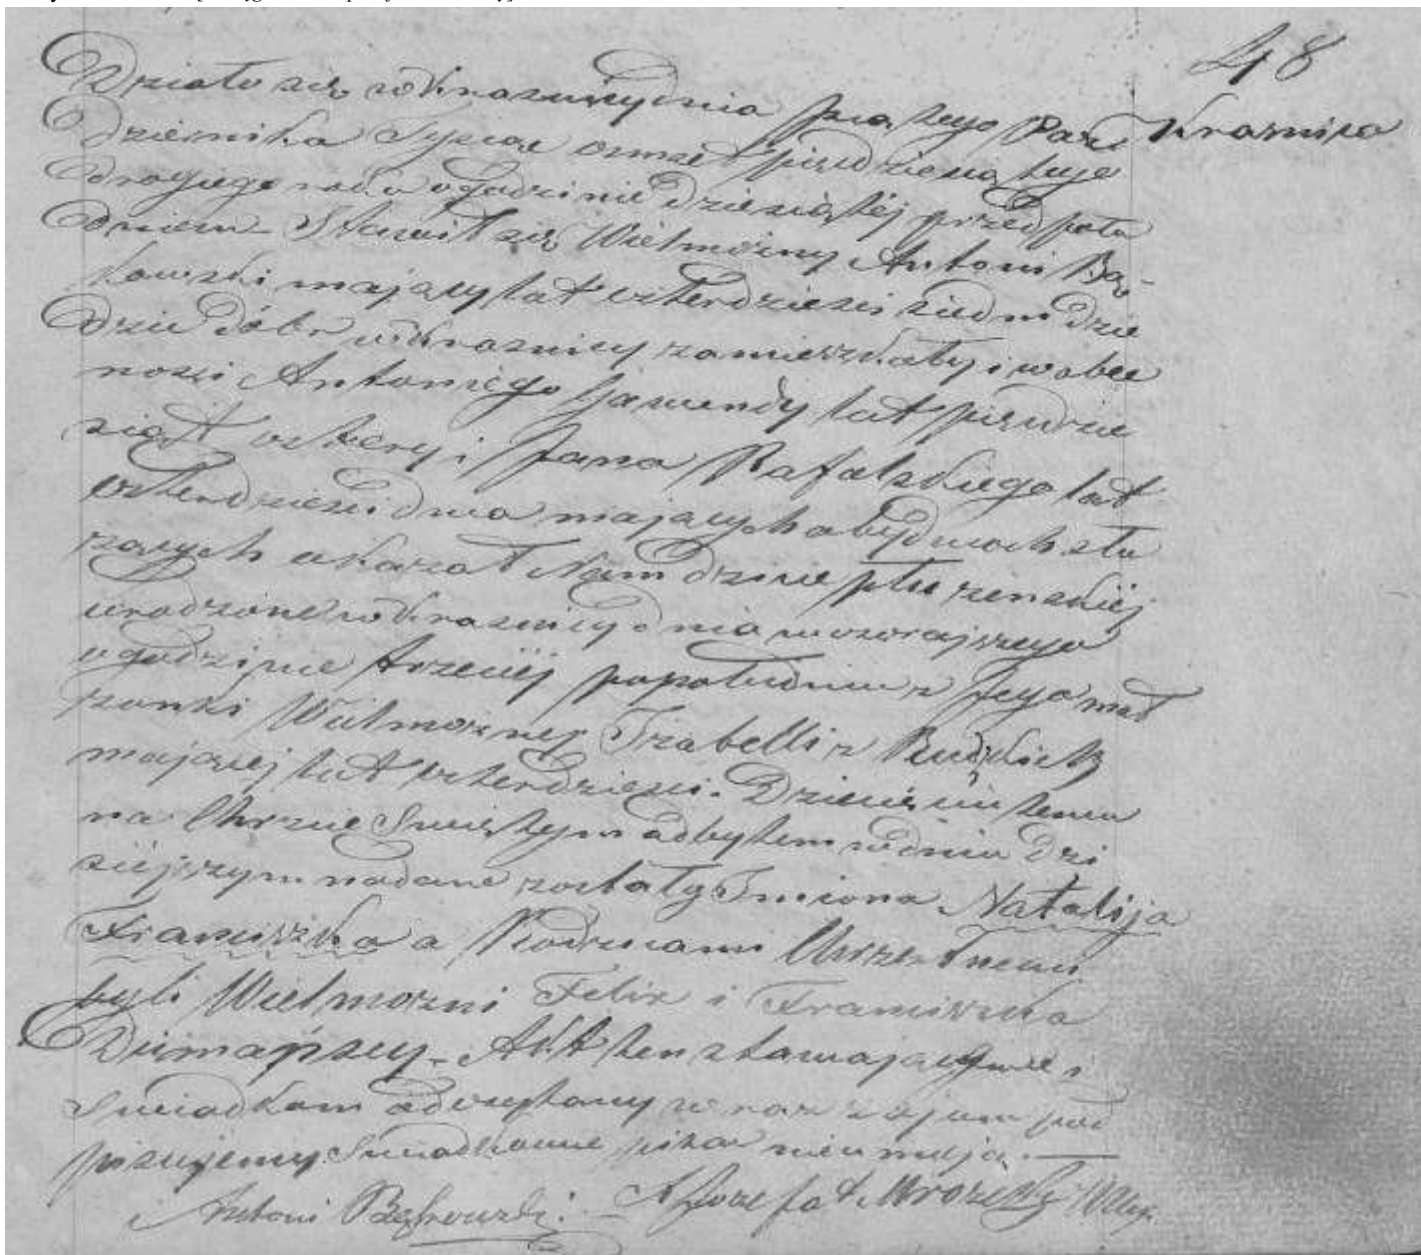 48
Krasnica
Działo się w Krasnicy dnia piątego Paź
dziernika Tysiąc osmset pięcdziesiątego
drugiego roku o godzinie dziesiątéj przed połu
dniem. Stawił się Wielmożny Antoni Bą-
kowski mający lat czterdzieści siedm dzie
dzic dóbr w Krasnicy zamieszkały i w obec
ności Antoniego Gawendy lat pięcdzie
siąt cztery i Jana Rafalskiego lat
czterdzieści dwa mających obydwoch słu
żących okazał Nam dziecie płci żenskiéj
urodzone w Krasnicy dnia wczorajszego
o godzinie trzeciéj popołudniu z Jego mał
żonki Wielmożnej Izabelli z Rudzkich
mającej lat czterdzieści. Dziecięciu temu
na Chrzcie Swiętym odbytem w dniu dzi
siéjszym nadane zostały Imiona Natalija
Franciszka a Rodzicami Chrzestnemi
byli Wielmożni Felix i Franciszka
Akt ten stawającemu i
Swiadkom odczytany wraz z ojcem pod
pisujemy Swiadkowie pisać nieumieją.
Antoni Bąkowski. X Jozefat